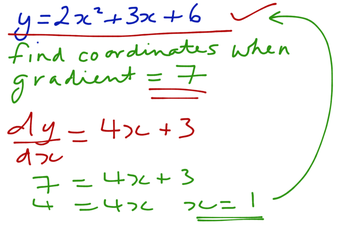 y = 2x² + 3x + 6
find coordinates when
gradient = 7
dy/dx = 4x + 3
7 = 4x + 3
4 = 4x x = 1